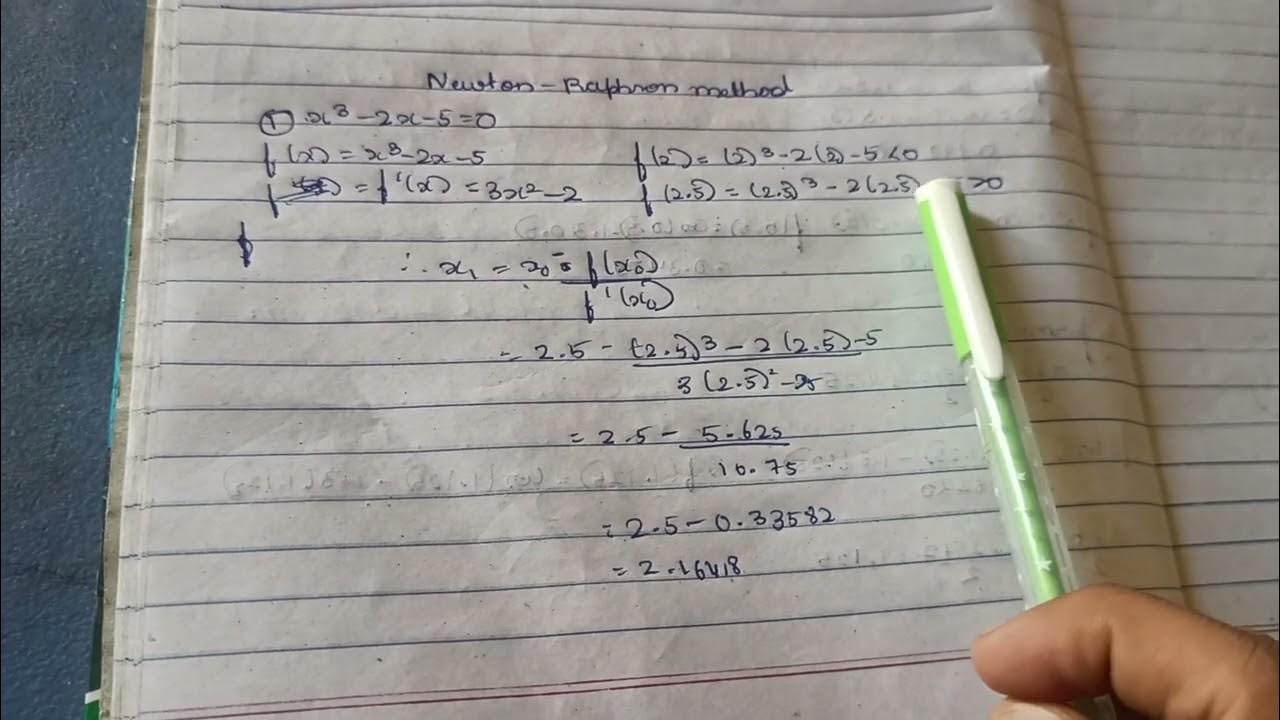 Newton-Raphson method
① x³-2x-5=0
f(x) = x³-2x-5
f(2) = (2)³-2(2)-5<0
= f'(x) = 3x²-2
f(2.5) = (2.5)³-2(2.5) >0
∴ x₁ = x₀ - f(x₀)
f'(x₀)
= 2.5 - (2.5)³-2(2.5)-5
3(2.5)²-
= 2.5 - 5.625
16.75
= 2.5-0.33582
= 2.16418